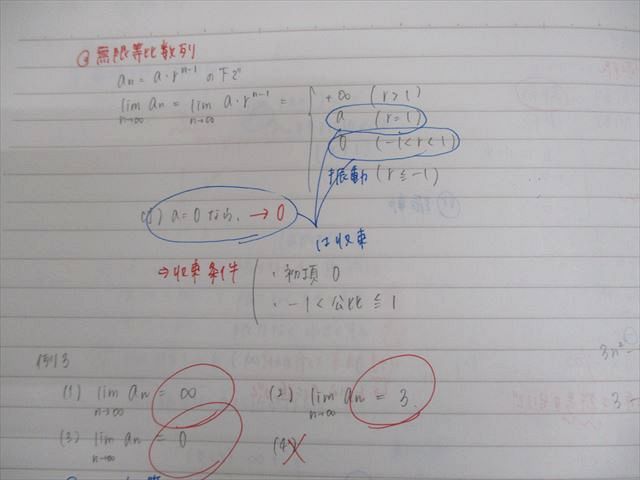 ③ 無限等比数列
an = a・r^{n-1} の下で
lim n→∞ an = lim n→∞ a・r^{n-1} =
+∞ (r>1)
a (r=1)
0 (-1<r<1)
振動 (r≦-1)
cf) a=0なら、→0
は収束
⇒収束条件
・初項 0
・-1<公比≦1
例3
(1) lim n→∞ an = ∞
(2) lim n→∞ an = 3.
(3) lim n→∞ an = 0
(4)
3n²-
3-